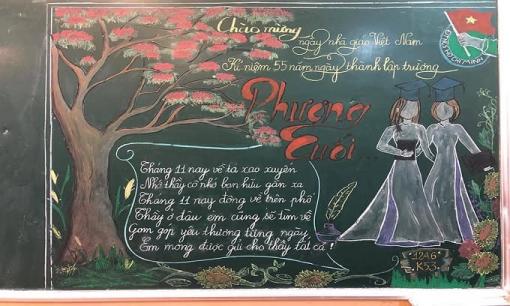 Chào mừng
ngày nhà giáo Việt Nam
Kỉ niệm 55 năm ngày thành lập trường
Phượng
Cuối...
Tháng 11 nay về ta xao xuyến
Nhớ thầy cô nhớ bạn hữu gần xa
Tháng 11 nay đông về trên phố
Thầy ở đâu em cũng sẽ tìm về
Gom góp yêu thương từng ngày
Em mong được gửi cho thầy tất cả!
12A6
K53